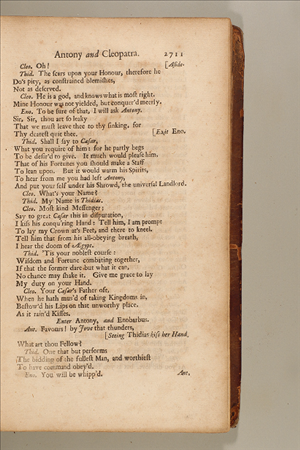 Antony and Cleopatra. 2711
Cleo. Oh! [Aside.
Thid. The scars upon your Honour, therefore he
Do's pity, as constrained blemishes,
Not as deserved.
Cleo. He is a god, and knows what is most right.
Mine Honour was not yielded, but conquer'd meerly.
Eno. To be sure of that, I will ask Antony.
Sir, Sir, thou art so leaky
That we must leave thee to thy sinking, for
Thy dearest quit thee. [Exit Eno.
Thid. Shall I say to Cæsar,
What you require of him: for he partly begs
To be desir'd to give. It much would please him,
That of his Fortunes you should make a Staff
To lean upon. But it would warm his Spirits,
To hear from me you had left Antony,
And put your self under his Shrowd, the universal Landlord.
Cleo. What's your Name?
Thid. My Name is Thidias.
Cleo. Most kind Messenger;
Say to great Cæsar this in disputation,
I kiss his conqu'ring Hand: Tell him, I am prompt
To lay my Crown at's Feet, and there to kneel.
Tell him that from his all-obeying breath,
I hear the doom of Ægypt.
Thid. 'Tis your noblest course:
Wisdom and Fortune combating together,
If that the former dare but what it can,
No chance may shake it. Give me grace to lay
My duty on your Hand.
Cleo. Your Cæsar's Father oft,
When he hath mus'd of taking Kingdoms in,
Bestow'd his Lips on that unworthy place,
As it rain'd Kisses.
Enter Antony, and Enobarbus.
Ant. Favours! by Jove that thunders,
[Seeing Thidias kiss her Hand.
What art thou Fellow?
Thid. One that but performs
The bidding of the fullest Man, and worthiest
To have command obey'd.
Eno. You will be whipp'd. Ant.